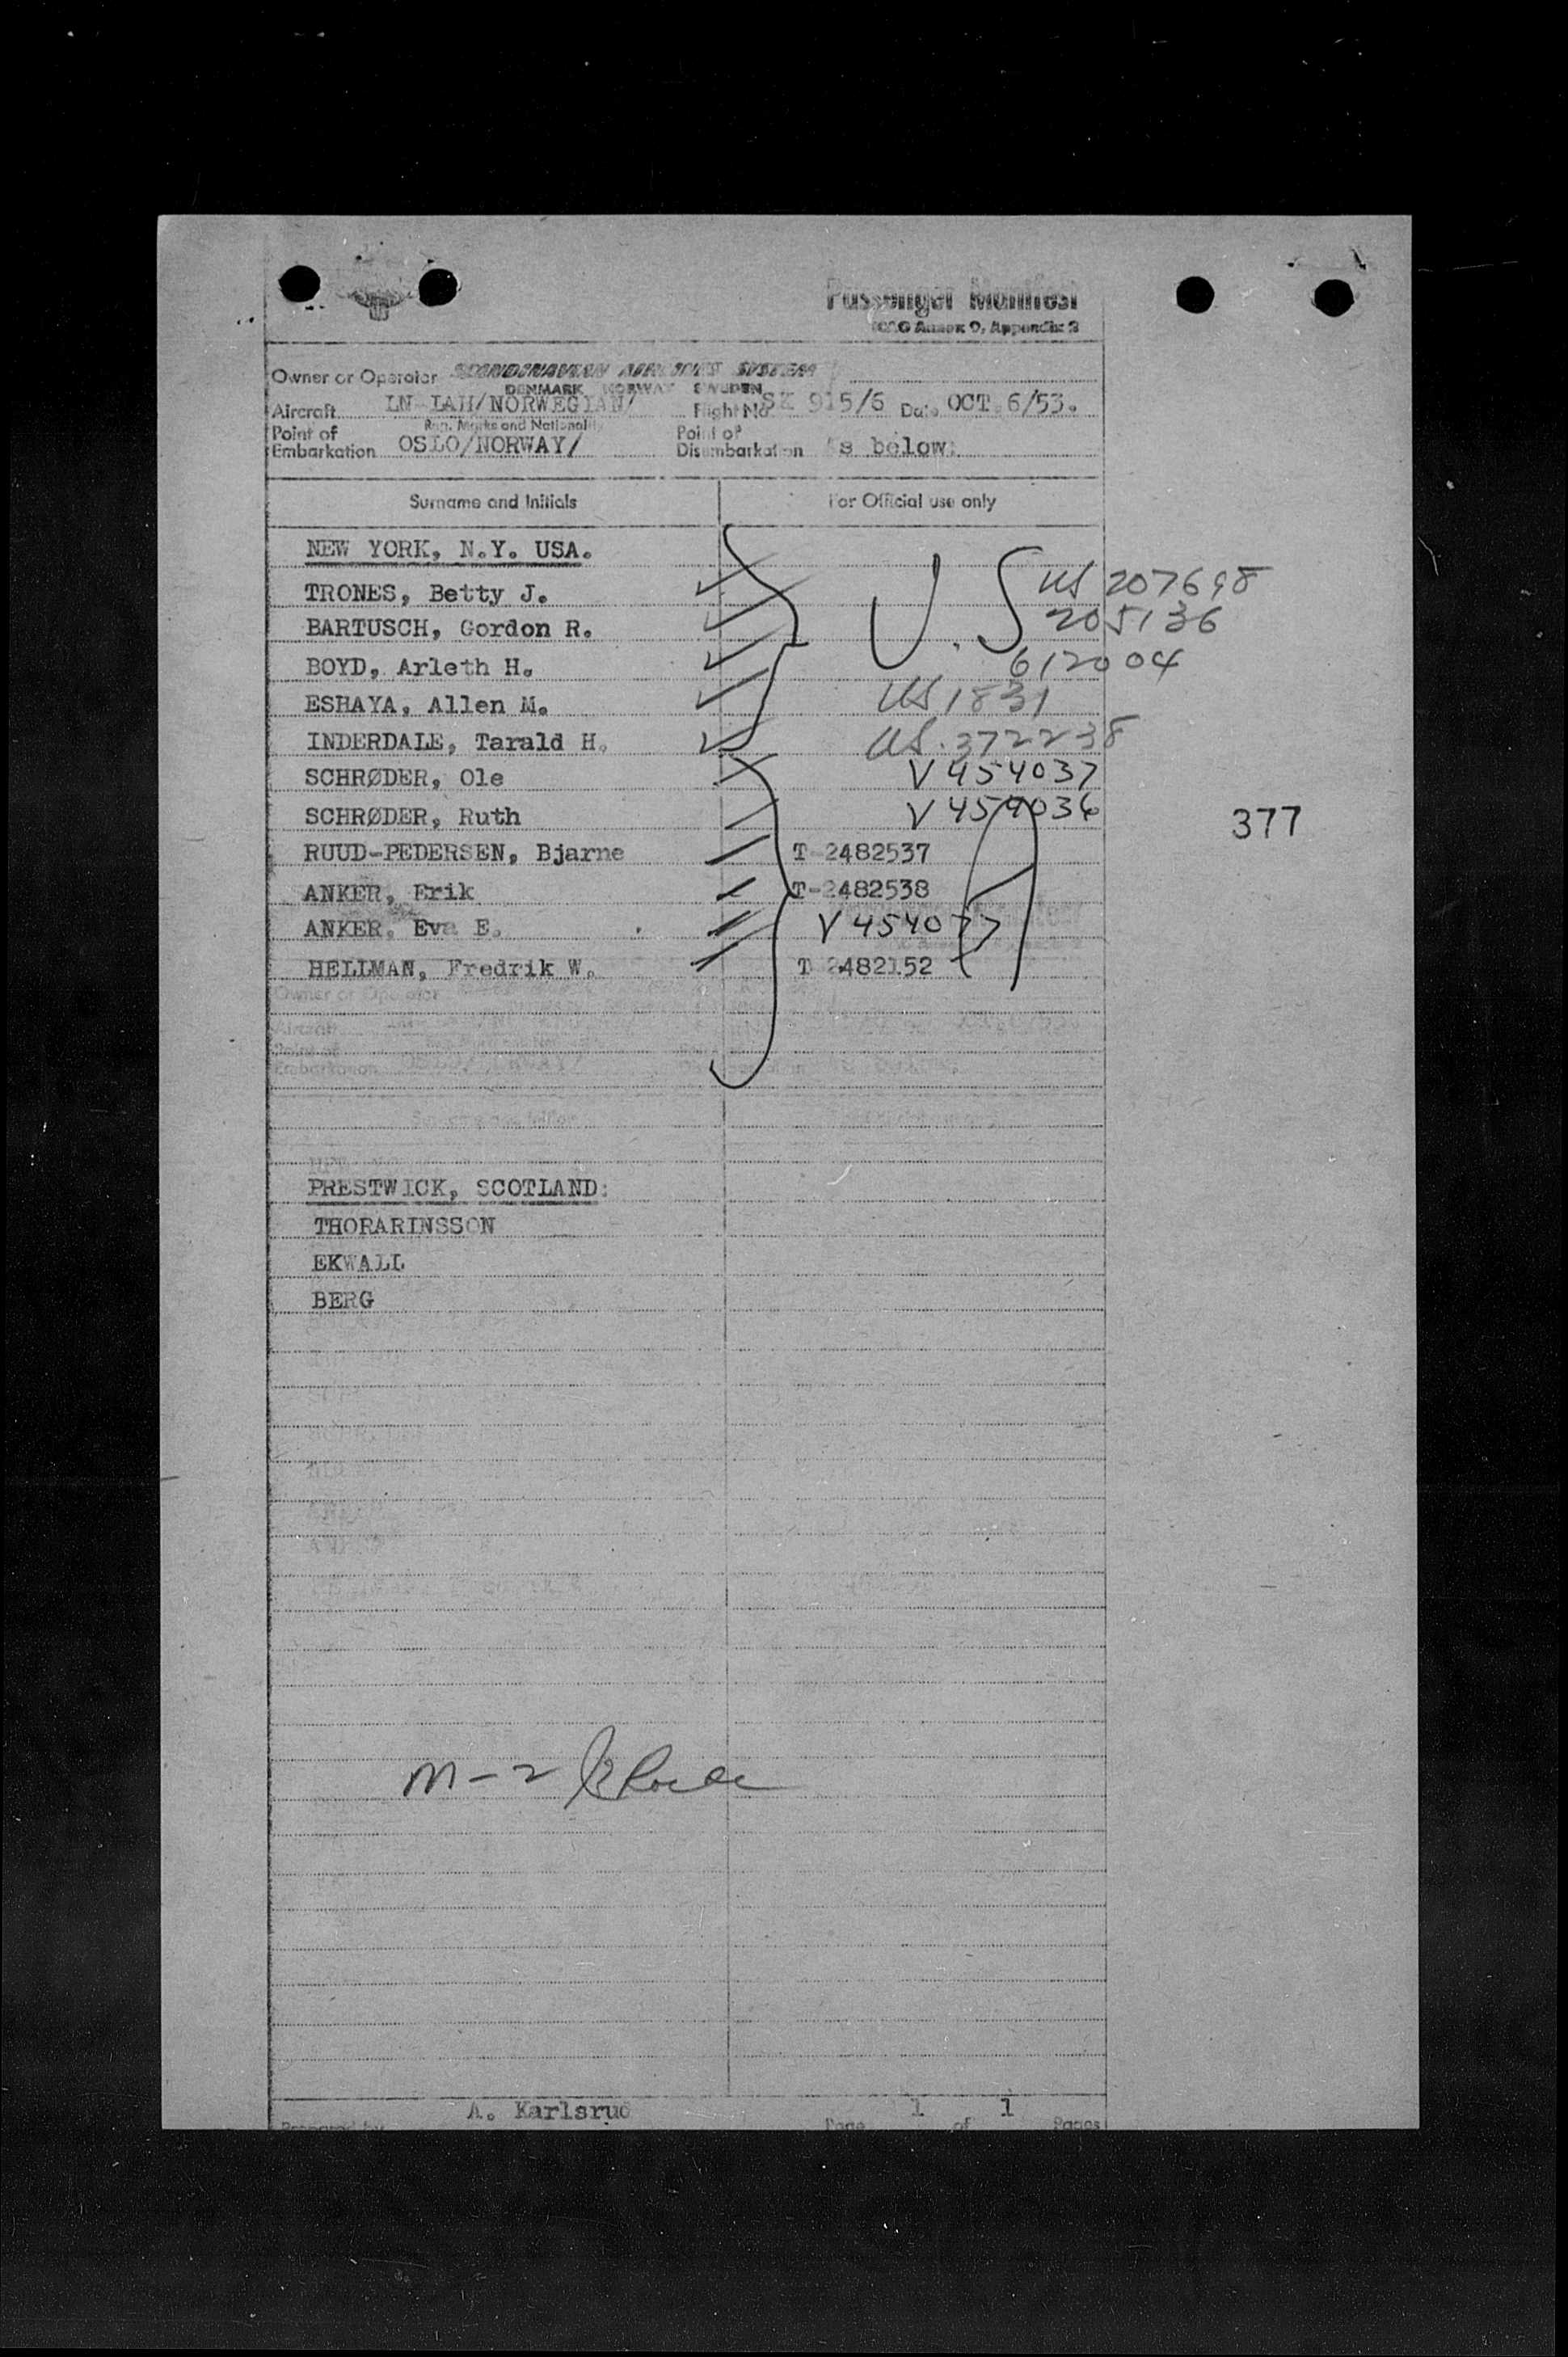 Passenger Manifest
ICAO Annex 9, Appendix 3
Owner or Operator SCANDINAVIAN AIRLINES SYSTEM
DENMARK NORWAY SWEDEN
Aircraft LN-LAH/NORWEGIAN/ Flight No SK 915/6 Date OCT. 6/53.
Reg. Marks and Nationality
Point of Embarkation OSLO/NORWAY/ Point of Disembarkation As below:
Surname and Initials For Official use only
NEW YORK, N.Y. USA.
U.S
TRONES, Betty J. US 207698
BARTUSCH, Gordon R. 205136
BOYD, Arleth H. 612004
ESHAYA, Allen M. US 1831
INDERDALE, Tarald H. US. 372238
SCHRØDER, Ole V 454037
SCHRØDER, Ruth V 454036
377
RUUD-PEDERSEN, Bjarne T-2482537
ANKER, Erik T-2482538
ANKER, Eva E. V 454077
HELLMAN, Fredrik W. T 2482152
PRESTWICK, SCOTLAND:
THORARINSSON
EKWALL
BERG
M-2
A. Karlsrud
Prepared by Page 1 of 1 Pages